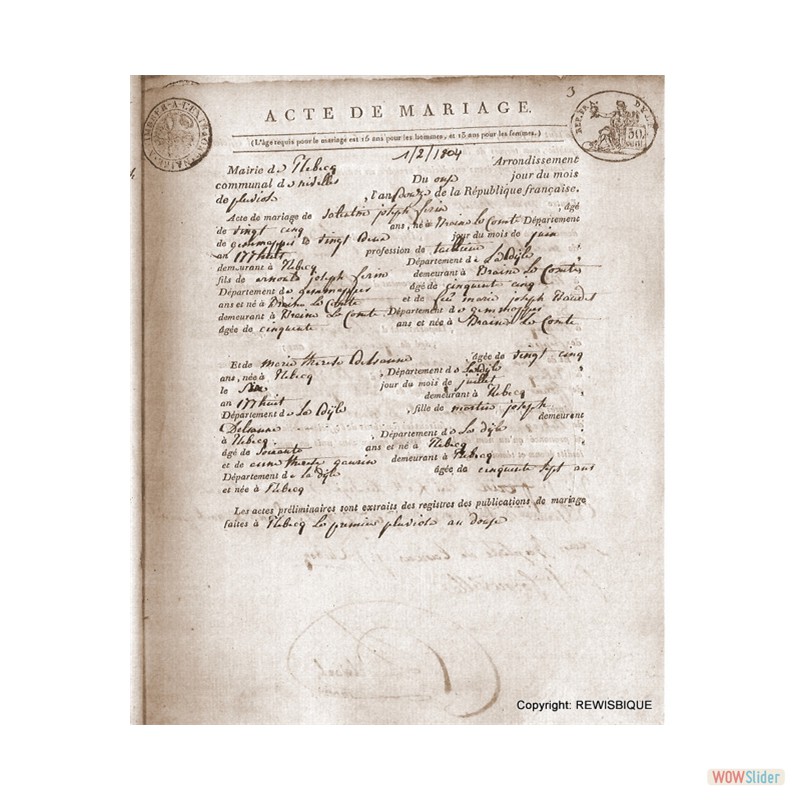 3
ACTE DE MARIAGE.
(L'âge requis pour le mariage est 15 ans pour les hommes, et 13 ans pour les femmes.)
1/2/1804
Mairie de Rebecq Arrondissement
communal de nivelles Du onze jour du mois
de pluviose , l'an douze de la République française.
Acte de mariage de joseph , âgé
de vingt cinq ans, né à Braine Le Comte Département
de gemmappes le vingt Deux jour du mois de juin
an profession de
demeurant à Rebecq Département de La Dyle
fils de joseph demeurant à Braine Le Comte
Département de gemmappes âgé de cinquante cinq
ans et né à Braine Le Comte et de feu marie joseph
demeurant à Braine Le Comte Département de gemmappes
âgée de cinquante ans et née à Braine Le Comte
Et de marie therese Delsanne âgée de vingt cinq
ans, née à Rebecq , Département de La Dyle
le Six jour du mois de juillet
an demeurant à Rebecq
Département de La Dyle , fille de martin joseph
Delsanne demeurant
à Rebecq , Département de La dyle
âgé de Soixante ans et né à Rebecq
et de therese demeurant à Rebecq
Département de La dyle âgée de cinquante sept ans
et née à Rebecq
Les actes préliminaires sont extraits des registres des publications de mariage
faites à Rebecq Le premier pluviose an douze
Copyright: REWISBIQUE
WOWSlider